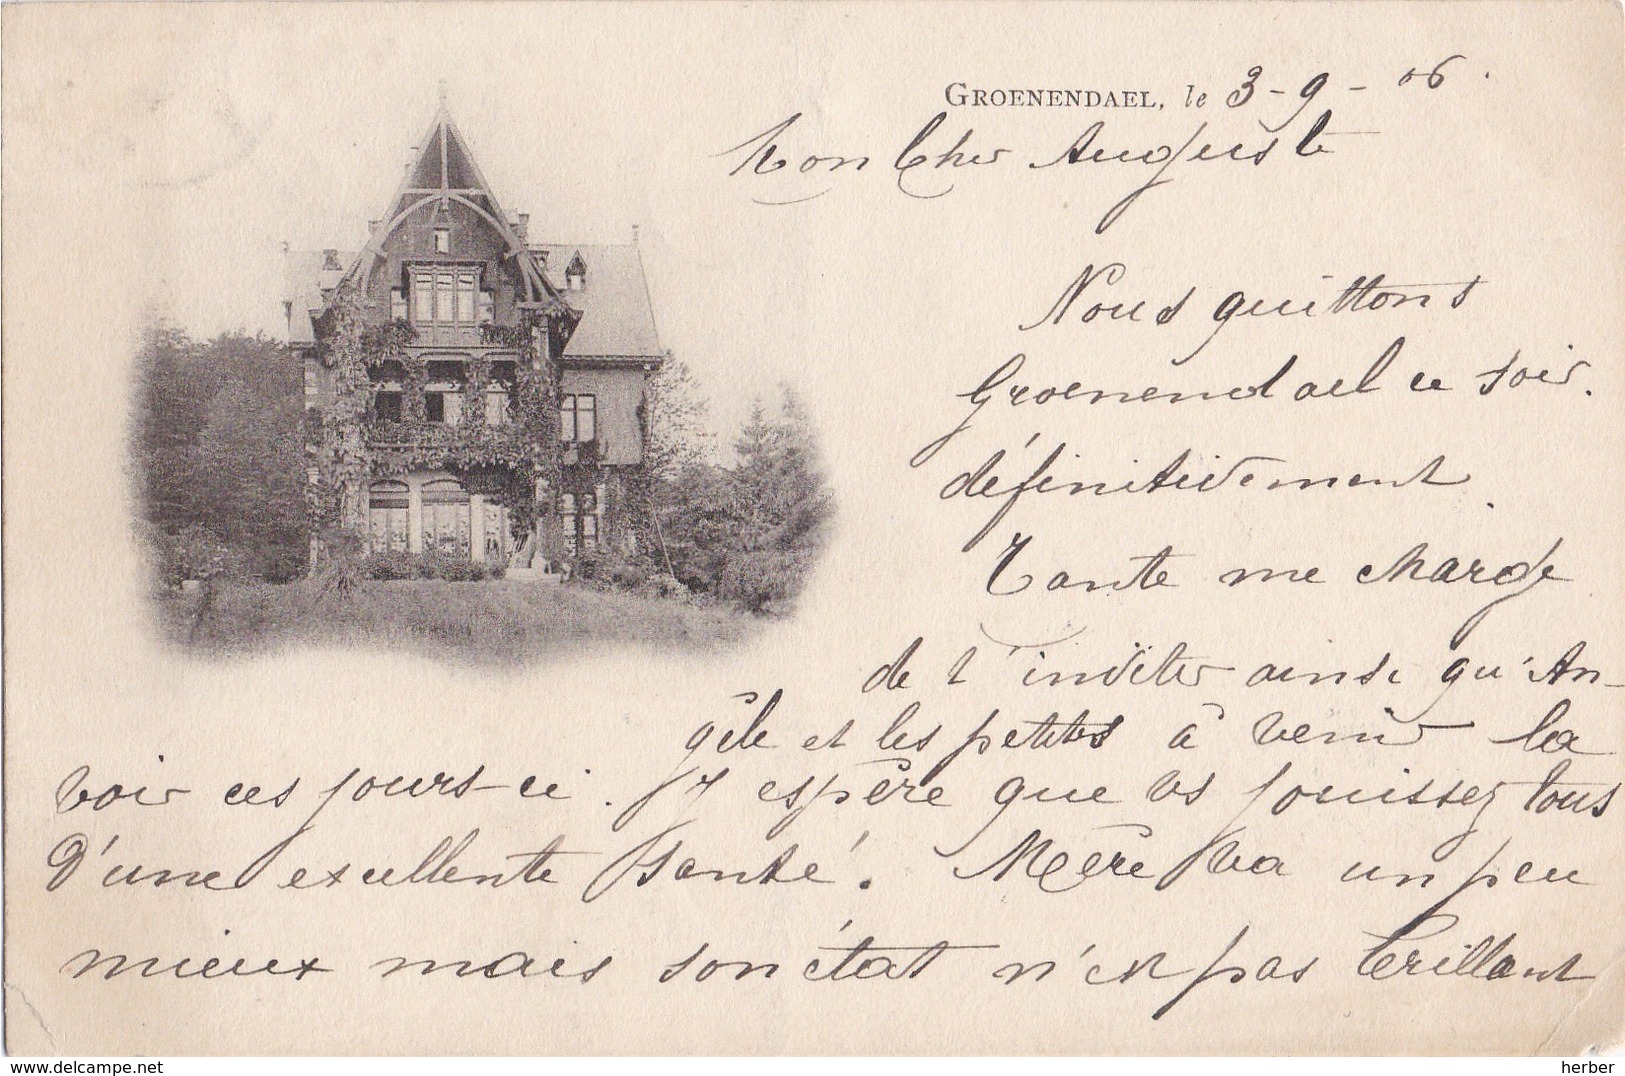 GROENENDAEL, le 3-9-06.
Mon Cher Auguste
Nous quittons
Groenendael ce soir.
définitivement.
Tante me charge
de t'inviter ainsi qu'An-
gèle et les petites à venir la
voir ces jours-ci. J'espère que vs jouissez tous
d'une excellente santé. Mère va un peu
mieux mais son état n'est pas brillant
delcampe.net
herber